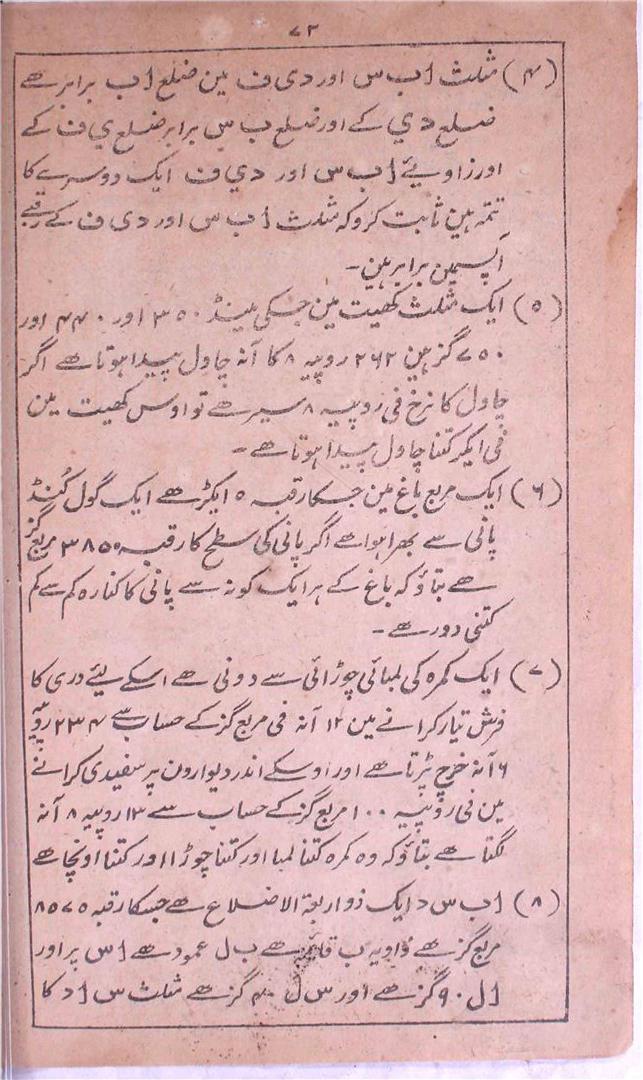 ۷۲
(۴) مثلث اب س اور دی ف مین ضلع اب برابر ہے
ضلع دي کے اور ضلع ب س برابر ضلع ي ف کے
اور زاویئے اب س اور دي ف ایک دوسرے کا
تتمہ ہین ثابت کرو کہ مثلث اب س اور دی ف کے رقبے
آپسمین برابر ہین ۔
(۵) ایک مثلث کھیت مین جسکی مینڈ ۳۵۰ اور ۴۴۰ اور
۷۵۰ گز ہین ۲۶۲ روپیہ ۸ کا آنہ چاول پیدا ہوتا ہے اگر
چاول کا نرخ فی روپیہ ۸ سیر ہے تو اوس کھیت مین
فی ایکر کتنا چاول پیدا ہوتا ہے ۔
(۶) ایک مربع باغ مین جسکا رقبہ ۵ ایکڑ ہے ایک گول کُنڈ
پانی سے بھرا ہوا ہے اگر پانی کی سطح کا رقبہ ۳۸۵۰ مربع گز
ہے بتاؤ کہ باغ کے ہر ایک کونہ سے پانی کا کنارہ کم سے کم
کتنی دور ہے ۔
(۷) ایک کمرہ کی لمبائی چوڑائی سے دونی ہے اسکے لیئے دری کا
فرش تیار کرانے مین ۱۲ آنہ فی مربع گز کے حساب سے ۲۳۴ روپیہ
۶ آنہ خرچ پڑتا ہے اور اوسکے اندر دیوارون پر سفیدی کرانے
مین فی روپیہ ۱۰۰ مربع گز کے حساب سے ۱۳ روپیہ ۸ آنہ
لگتا ہے بتاؤ کہ وہ کمرہ کتنا لمبا اور کتنا چوڑا اور کتنا اونچا ہے
(۸) اب س د ایک ذواربعۃ الاضلاع ہے جسکا رقبہ ۸۵۷۵
مربع گز ہے زاویہ ب قائمہ ہے ب ل عمود ہے اس پر اور
ال ۹۰ گز ہے اور س ل ۴۰ گز ہے مثلث س اد کا